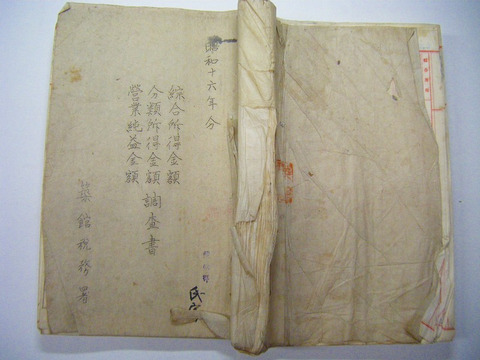 昭和十六年分
綜合所得金額
分類所得金額調査書
營業純益金額
築館税務署